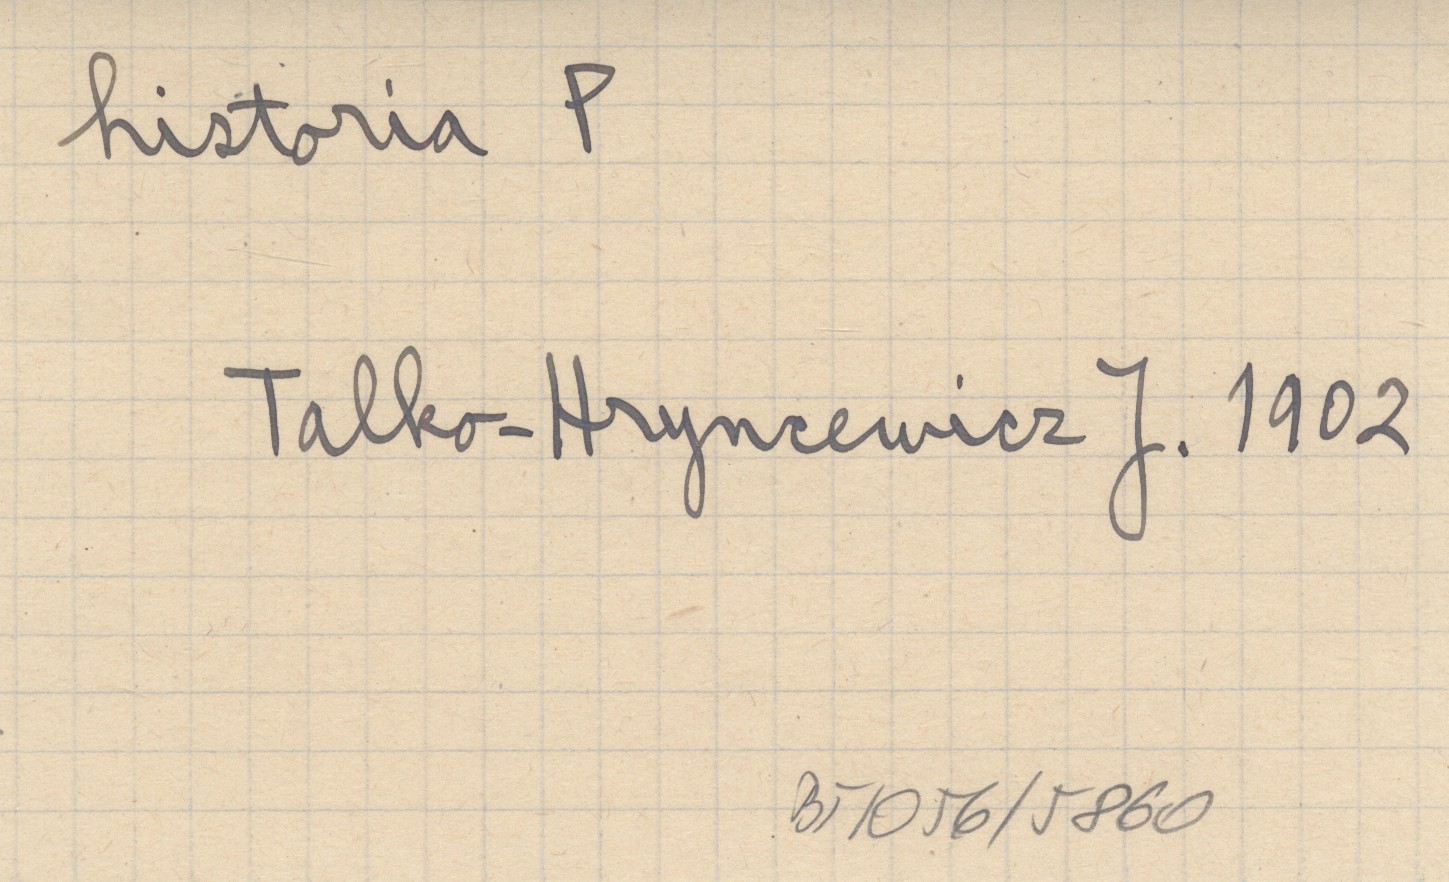 historia P
Talko-Hryncewicz J. 1902
B51056/5860